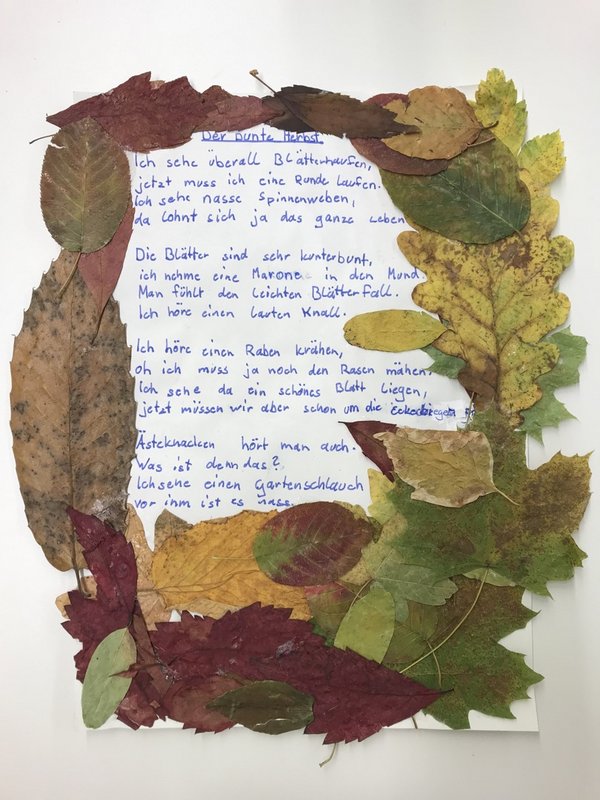 Der Bunte Herbst
Ich sehe überall Blätterhaufen,
jetzt muss ich eine Runde Laufen.
Ich sehe nasse Spinnenweben,
da lohnt sich ja das ganze Leben
Die Blätter sind sehr kunterbunt,
ich nehme eine Marone in den Mund.
Man fühlt den leichten Blätterfall.
Ich höre einen lauten Knall.
Ich höre einen Raben krähen,
oh ich muss ja noch den Rasen mähen.
Ich sehe da ein schönes Blatt liegen,
jetzt müssen wir aber schon um die
Ästeknacken hört man auch.
Was ist denn das?
Ich sehe einen Gartenschlauch
vor ihm ist es nass.